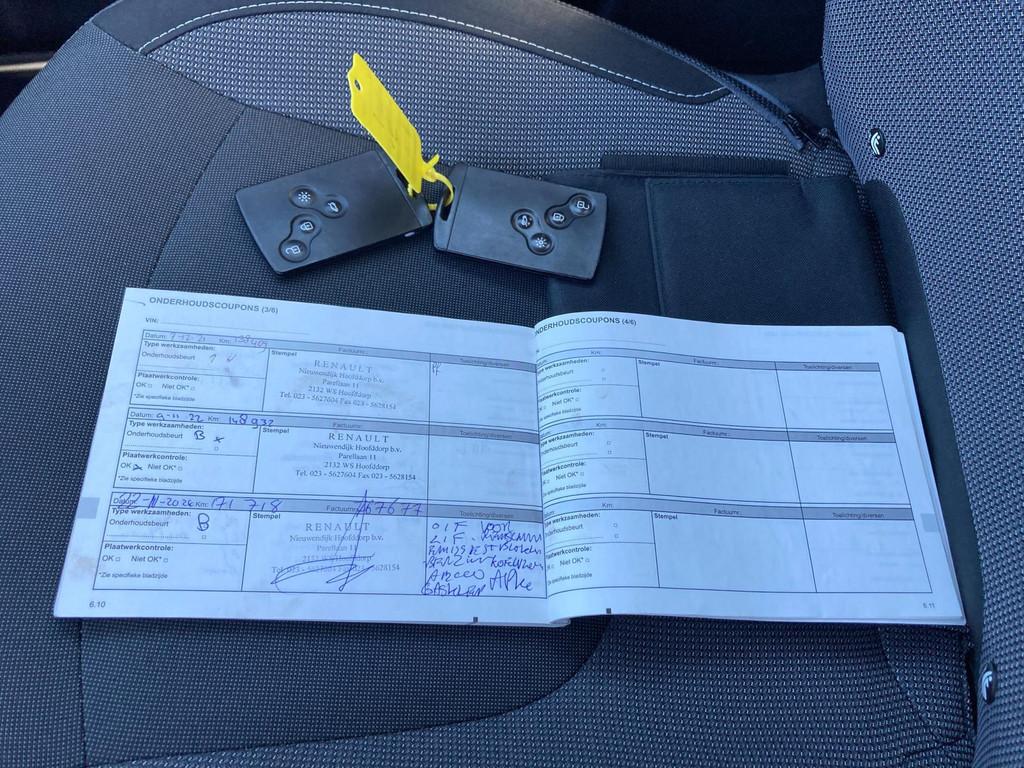 ONDERHOUDSCOUPONS (3/6)
VIN:
Datum: 7-12-21 Km:
Type werkzaamheden:
Onderhoudsbeurt
Plaatwerkcontrole:
OK Niet OK*
*Zie specifieke bladzijde
Stempel Factuurnr.: Toelichting/diversen
RENAULT
Nieuwendijk Hoofddorp b.v.
Parellaan 11
2132 WS Hoofddorp
Tel. 023 - 5627604 Fax 023 - 5628154
Datum: 9-11-22 Km: 148932
Type werkzaamheden:
Onderhoudsbeurt B
Plaatwerkcontrole:
OK Niet OK*
*Zie specifieke bladzijde
Stempel Factuurnr.: Toelichting/diversen
RENAULT
Nieuwendijk Hoofddorp b.v.
Parellaan 11
2132 WS Hoofddorp
Tel. 023 - 5627604 Fax 023 - 5628154
Datum: Km: 171 718
Type werkzaamheden:
Onderhoudsbeurt B
Plaatwerkcontrole:
OK Niet OK*
*Zie specifieke bladzijde
Stempel Factuurnr.:
RENAULT
Nieuwendijk Hoofddorp b.v.
Parellaan 11
2132 WS Hoofddorp
6.10
ONDERHOUDSCOUPONS (4/6)
Km:
Type werkzaamheden:
Onderhoudsbeurt
Plaatwerkcontrole:
OK Niet OK*
*Zie specifieke bladzijde
Stempel Factuurnr.: Toelichting/diversen
Km:
Type werkzaamheden:
Onderhoudsbeurt
Plaatwerkcontrole:
OK Niet OK*
*Zie specifieke bladzijde
Stempel Factuurnr.: Toelichting/diversen
Km:
Type werkzaamheden:
Onderhoudsbeurt
Plaatwerkcontrole:
OK Niet OK*
Zie specifieke bladzijde
Stempel Factuurnr.: Toelichting/diversen
6.11